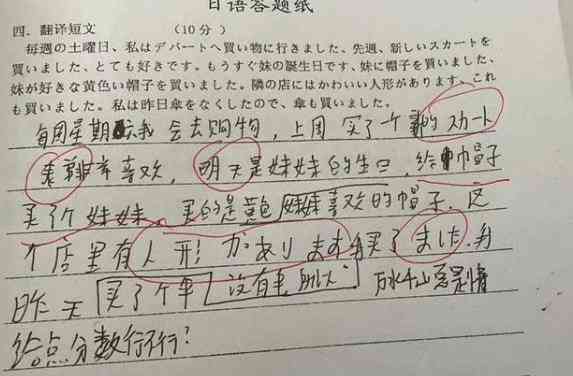 日语答题纸
四. 翻译短文 (10分)
毎週の土曜日、私はデパートへ買い物に行きました、先週、新しいスカートを
買いました、とても好きです。もうすぐ妹の誕生日です、妹に帽子を買いました、
妹が好きな黄色い帽子を買いました。隣の店にはかわいい人形があります、これ
も買いました。私は昨日傘をなくしたので、傘も買いました。
每周星期 我 会去购物，上周 买了个 新的スカート
非常喜欢，明天是妹妹的生日，给 帽子
买个妹妹、买的是黄色 妹妹喜欢的帽子. 这
个店里有人形 があります 买了 ました. 我
昨天 买了个伞 没有 所以 万水千山总是情
给点分数行不行？